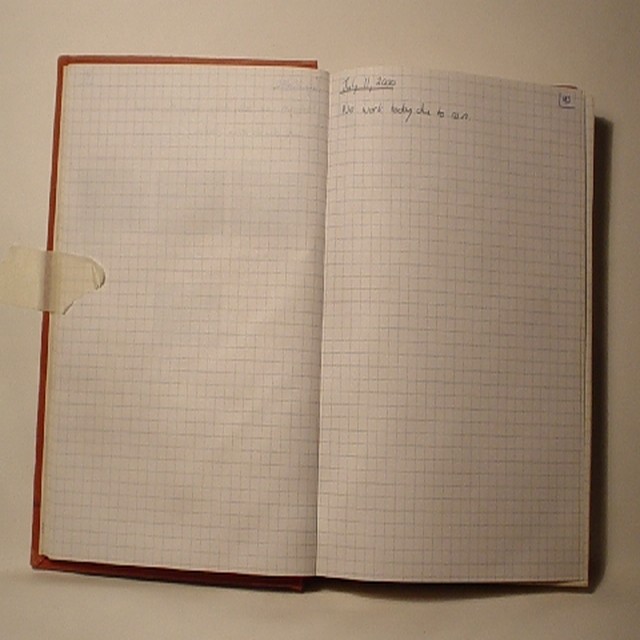 July 11, 2000
No work today due to rain.